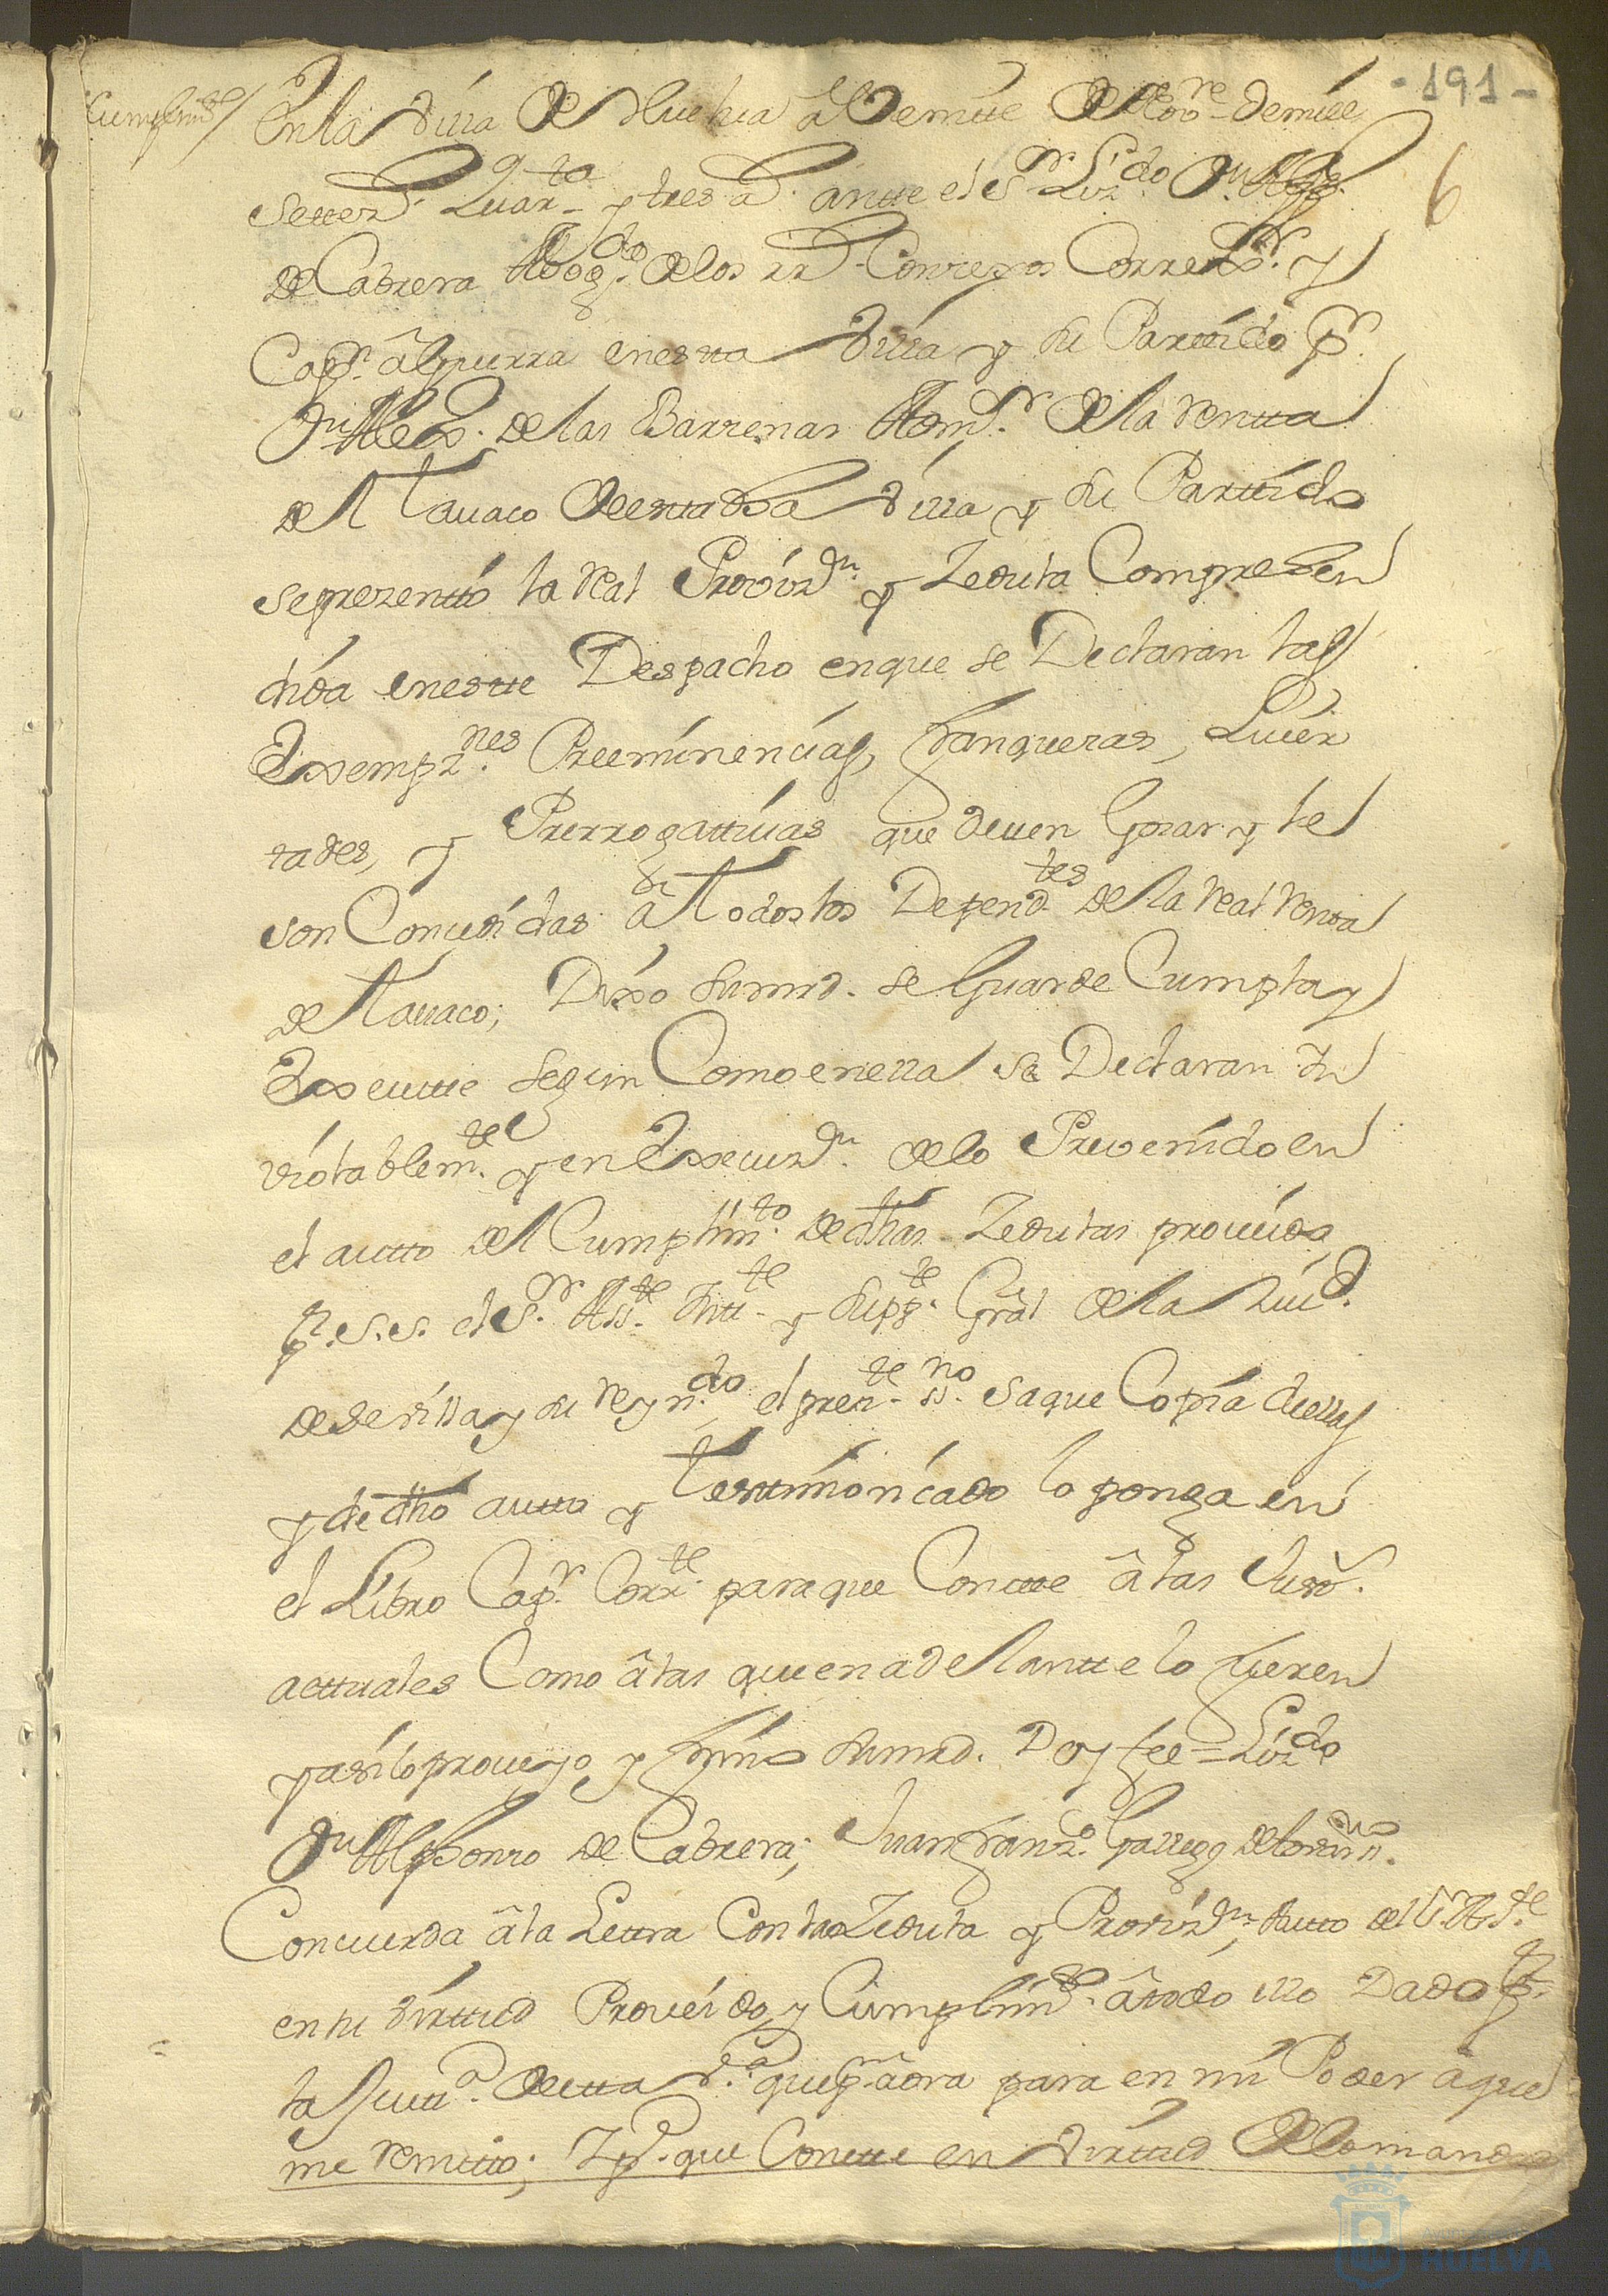 -191-
6
Cumplimto/
En la Villa de Huelva a Veintte de Nove de mill
settezs Quarta y tres as antte el Sr Lizdo Dn Alfso
de Cabrera Abogdo de los rrs Conzejos Corregor y
Capn â Guerra en estta Villa y su Parttido pr
Dn de las Barrenas Admor de la rentta
del Tavaco de estta dha Villa y su Parttido
se presenttó la real Provizn y Zedula Comprehen
dida en estte Despacho en que se Declaran las
Exempznes Preeminencias, franquezas, Liver
tades, y Prerrogattivas que deven Gozar y le
son Conzedidas â Todos los Dependtes de la real renta
de Tavaco; Dixo su mrd. se Guarde Cumpla y
Execute segun Como en ella se Declaran in
violablemte y en Execuzn de lo Prevenido en
el autto del Cumplimto de dhas Zedulas proveido
pr S.S. el Sr Asste Intte y Suppte Gral de la Ziud
de Sevilla y su reyndo el preste ssno saque Copia de ellas
y de dho autto y Testtimoniado lo ponga en
el Libro Capr Corrte para que Constte â las Juszs
acttuales Como â las que en adelantte lo fueren
y asi lo proveyo y firmó su mrd. Doy fee = Lizdo
Dn Alphonso de Cabrera; Juan Franzo Gallego
Concuerda â la Lettra Con la Zedula y Provizn, Autto del Sr Asste
en su virttud Proveido, y Cumplimto â todo ello Dado pr
la Justta de estta va que pr aora para en mi Poder a que
me remitto; Y pa que Constte en Virttud de lo mandado
HUELVA